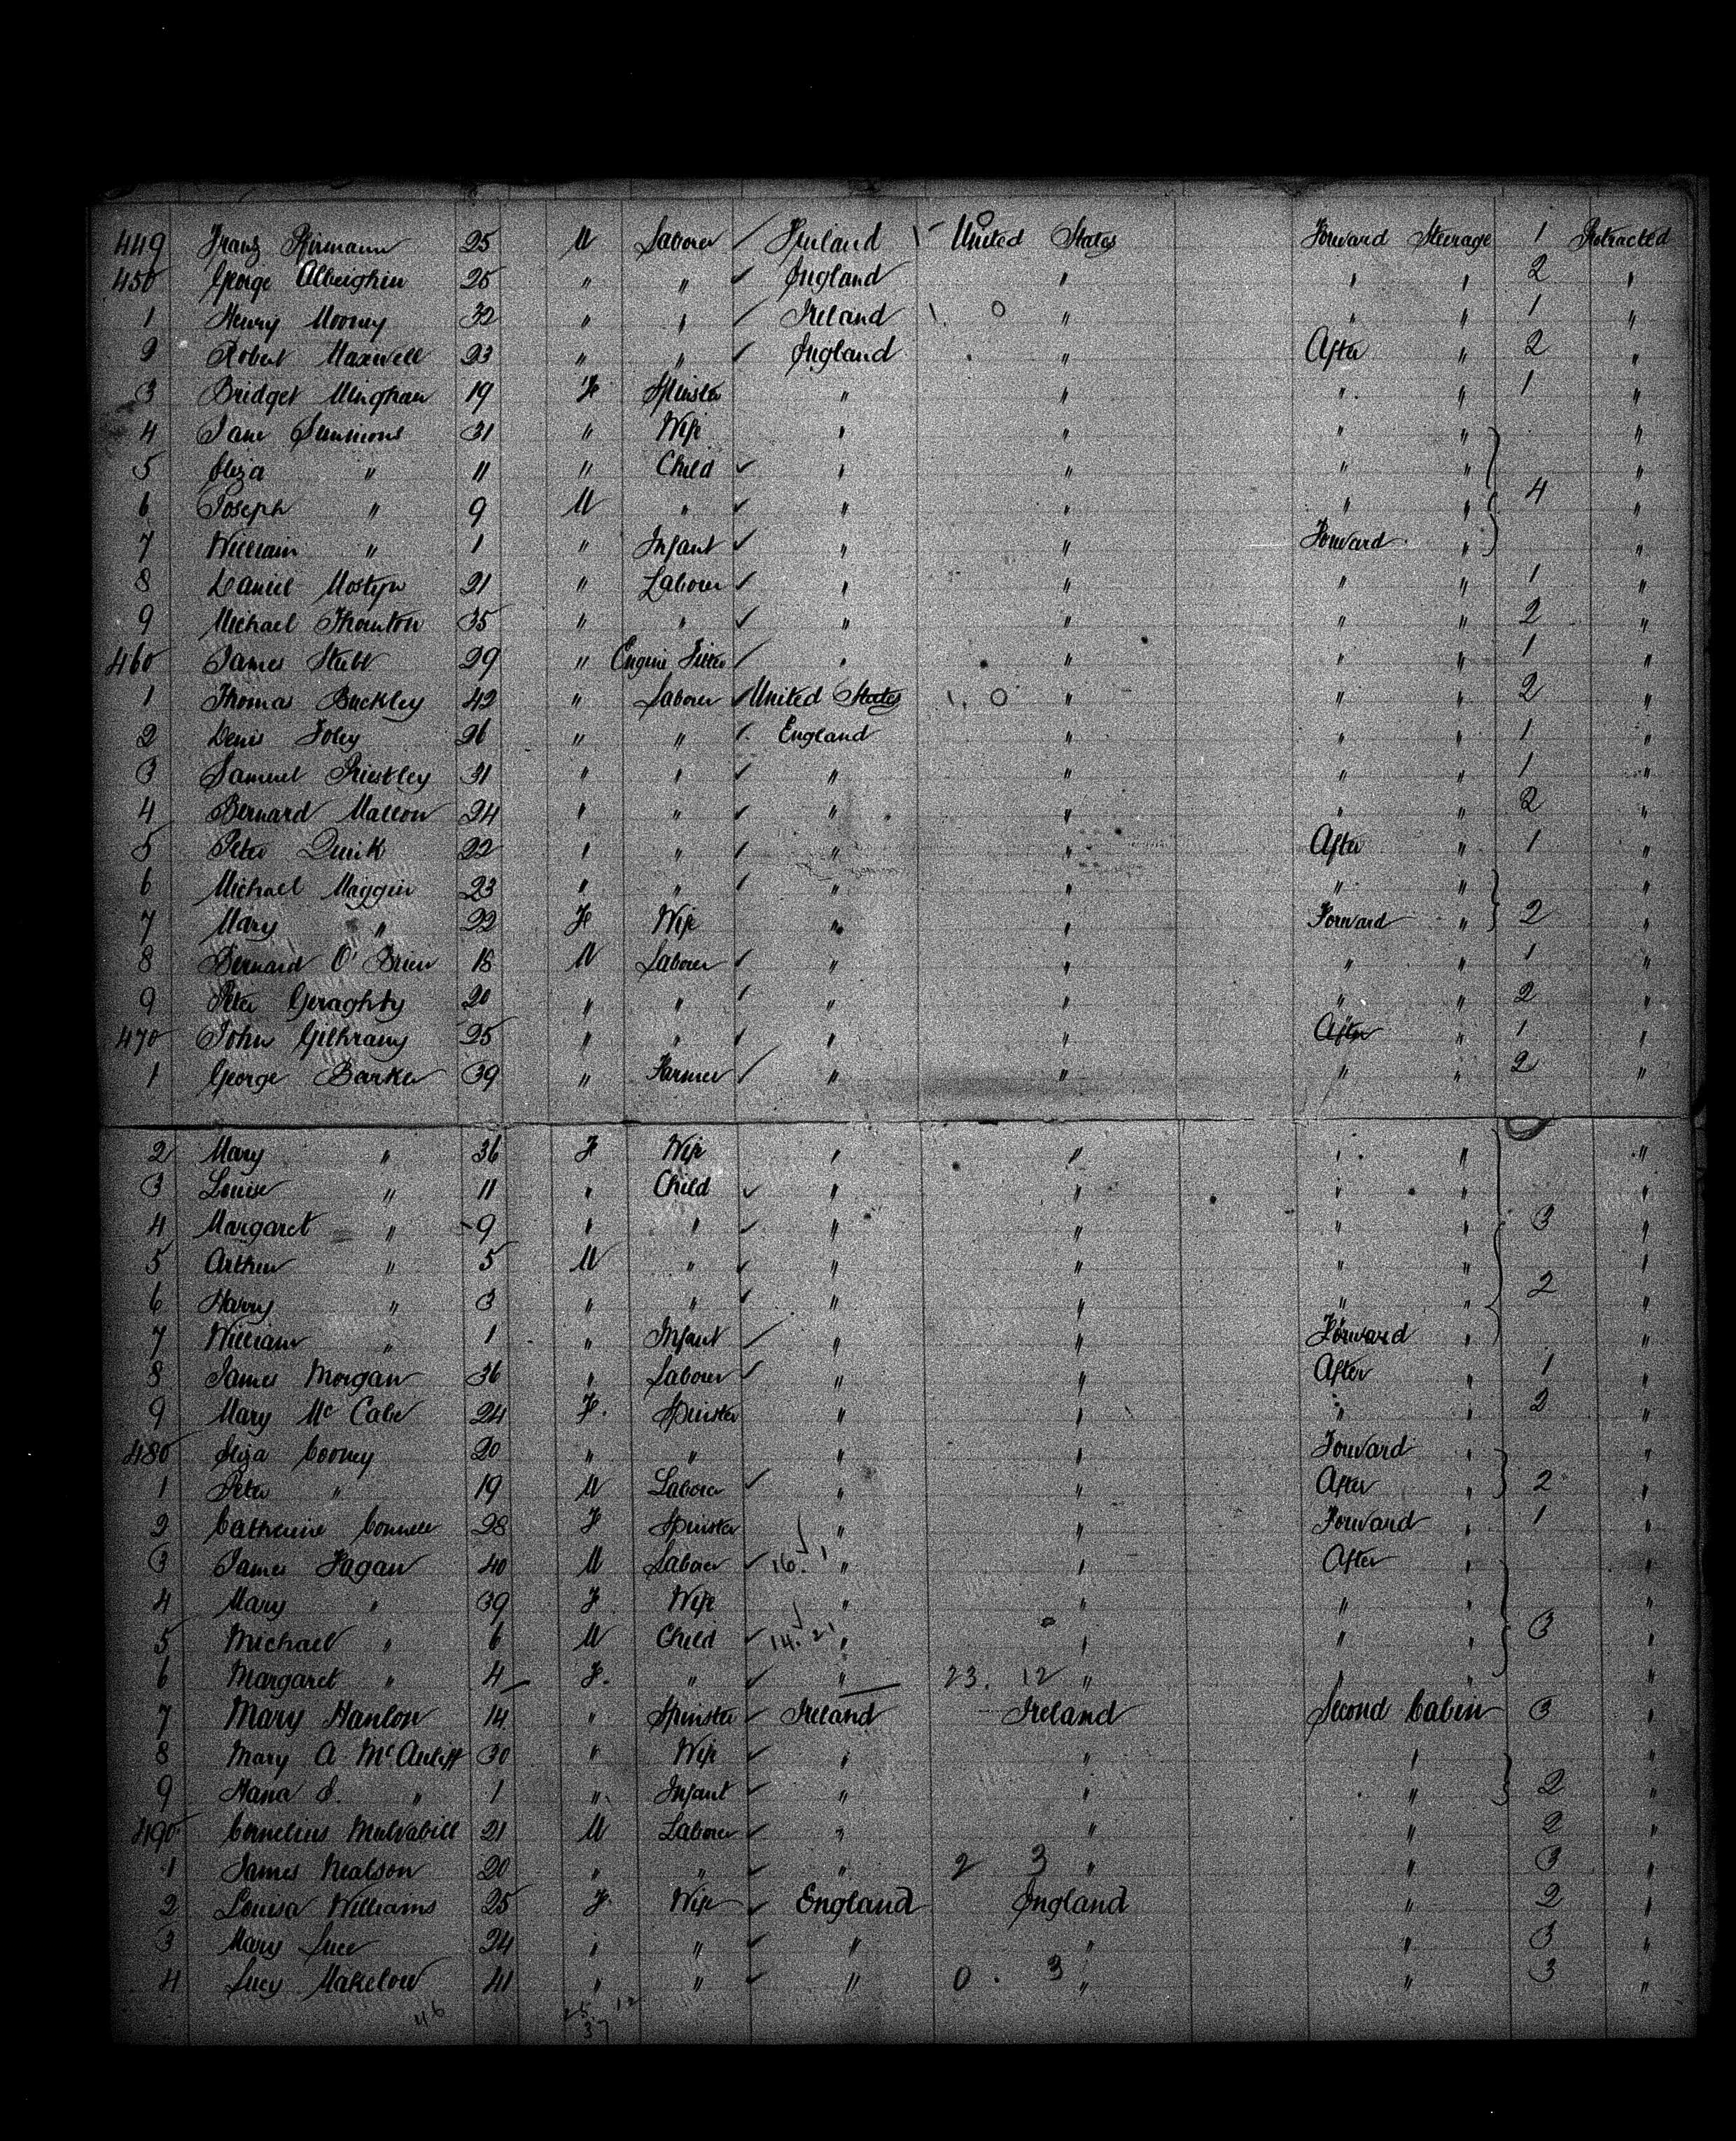 449 Franz 25 M Laborer ✓ Finland United States Forward Steerage 1 Protracted
450 George Alberghin 25 " " ✓ England " " " 2 "
1 Henry Mooney 32 " " ✓ Ireland 0 " " " 1 "
2 Robert Maxwell 23 " " ✓ England " After " 2 "
3 Bridget Minghan 19 F Spinster " " " " 1 "
4 Jane Simmons 31 " Wife " " " " "
5 Eliza " 11 " Child ✓ " " " " "
6 Joseph " 9 M " ✓ " " " " 4 "
7 William " 1 " Infant ✓ " " Forward " "
8 Daniel Mostyn 21 " Laborer ✓ " " " " 1 "
9 Michael Thornton 35 " " ✓ " " " " 2 "
460 James Stubb 29 " Engine Fitter ✓ " " " " 1 "
1 Thomas Buckley 42 " Laborer ✓ United States 0 " " " 2 "
2 Denis Foley 26 " " ✓ England " " " 1 "
3 Samuel Priestley 31 " " ✓ " " " " 1 "
4 Bernard Mallon 24 " " ✓ " " " " 2 "
5 Peter Quirk 22 " " ✓ " " After " 1 "
6 Michael Maggin 23 " " ✓ " " " " "
7 Mary " 22 F Wife " " Forward " 2 "
8 Bernard O'Brien 18 M Laborer ✓ " " " " 1 "
9 Peter Geraghty 20 " " ✓ " " " " 2 "
470 John Gilhrany 25 " " ✓ " " After " 1 "
1 George Barker 39 " Farmer ✓ " " " " 2 "
2 Mary " 36 F Wife " " " " "
3 Louise " 11 " Child ✓ " " " " "
4 Margaret " 9 " " ✓ " " " " 3 "
5 Arthur " 5 M " ✓ " " " " "
6 Harry " 3 " " ✓ " " " " 2 "
7 William " 1 " Infant ✓ " " Forward " "
8 James Morgan 36 " Laborer ✓ " " After " 1 "
9 Mary McCabe 24 F. Spinster " " " " 2 "
480 Eliza Cooney 20 " " " " Forward " "
1 Peter " 19 M Laborer ✓ " " After " 2 "
2 Catherine Connell 28 F Spinster " " Forward " 1 "
3 James Fagan 40 M Laborer ✓ 16. 1 " " After " "
4 Mary " 39 F Wife " " " " "
5 Michael " 6 M Child ✓ 14. 21 " " " " 3 "
6 Margaret " 4 F. " ✓ " 23. 12 " " " "
7 Mary Hanlon 14 " Spinster ✓ Ireland Ireland Second Cabin 3 "
8 Mary A McAuliff 30 " Wife ✓ " " " "
9 Hana " 1 " Infant ✓ " " " 2 "
490 Cornelius Mulvahill 21 M Laborer ✓ " " " 2 "
1 James Nealson 20 " " ✓ " 2 3 " " 3 "
2 Louisa Williams 25 F Wife ✓ England England " 2 "
3 Mary Luce 24 " " ✓ " " " 3 "
4 Lucy Makelow 41 " " ✓ " 0. 3 " " 3 "
46 25 12
37